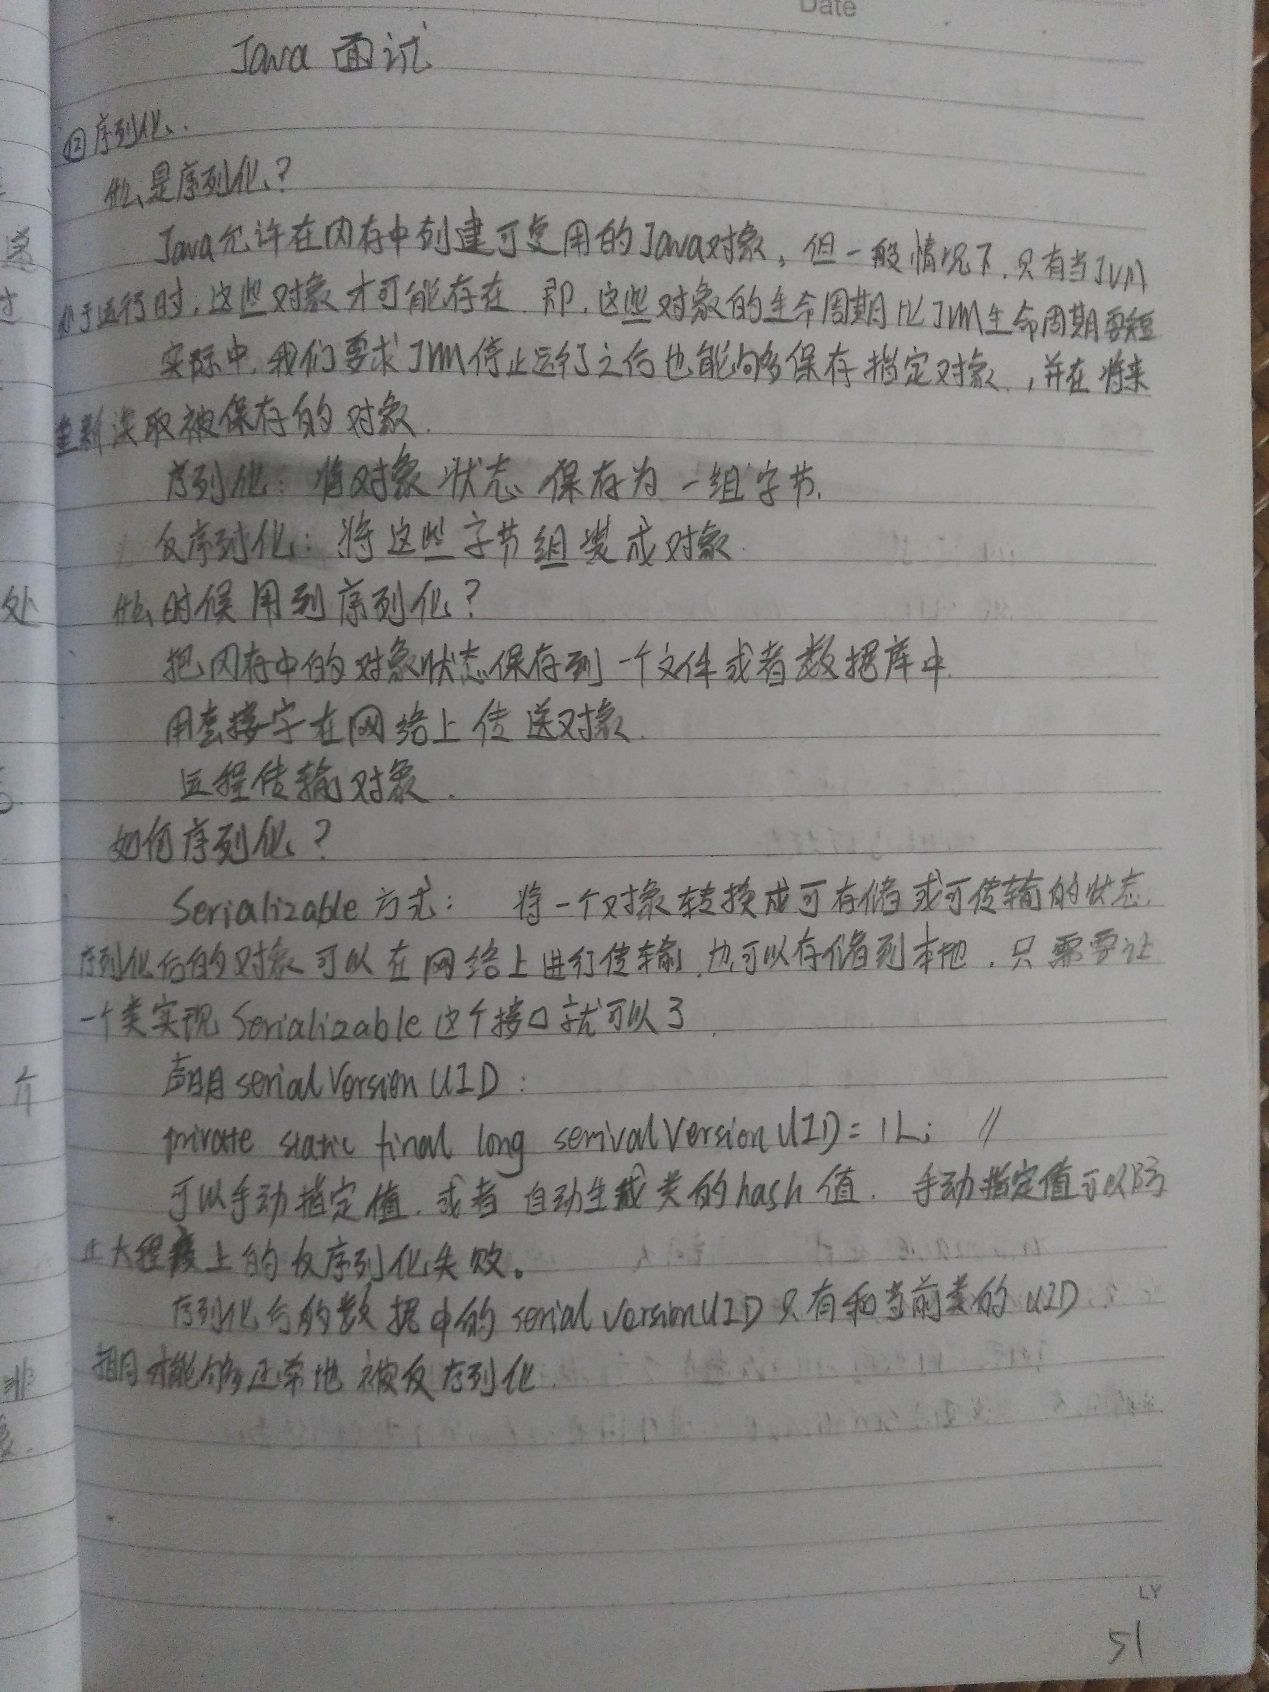 Date
Java 面试
⑫序列化.
什么是序列化?
Java允许在内存中创建可复用的Java对象, 但一般情况下, 只有当JVM
处于运行时, 这些对象才可能存在. 即, 这些对象的生命周期比JVM生命周期要短
实际中, 我们要求JVM停止运行之后也能够多保存指定对象, 并在将来
重新读取被保存的对象.
序列化: 将对象状态保存为一组字节.
反序列化: 将这些字节组装成对象.
什么时候用到序列化?
把内存中的对象状态保存到一个文件或者数据库中.
用套接字在网络上传送对象.
远程传输对象.
如何序列化?
Serializable方式: 将一个对象转换成可存储或可传输的状态.
序列化后的对象可以在网络上进行传输, 也可以存储到本地. 只需要让
一个类实现Serializable这个接口就可以了.
声明serialVersionUID:
private static final long serivalVersionUID = 1L; //
可以手动指定值, 或者自动生成类的hash值. 手动指定值可以防
止大程度上的反序列化失败。
序列化后的数据中的serialVersionUID只有和当前类的UID
相同才能够正常地被反序列化.
LY
51
处